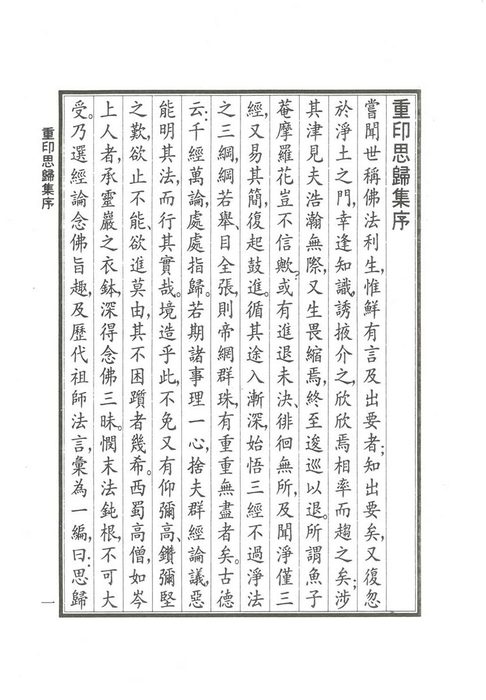 重印思歸集序
嘗聞世稱佛法利生，惟鮮有言及出要者；知出要矣，又復忽
於淨土之門，幸逢知識，誘掖介之，欣欣焉相率而趨之矣；涉
其津見夫浩瀚無際，又生畏縮焉，終至逡巡以退。所謂魚子
菴摩羅花豈不信歟？或有進退未決、徘徊無所，及聞淨僅三
經，又易其簡，復起鼓進。循其途入漸深，始悟三經不過淨法
之三綱，綱若舉、目全張，則帝網群珠，有重重無盡者矣。古德
云：千經萬論，處處指歸。若期諸事理一心，捨夫群經論議，惡
能明其法，而行其實哉。境造乎此，不免又有仰彌高、鑽彌堅
之歎，欲止不能、欲進莫由，其不困躓者幾希。西蜀高僧，如岑
上人者，承靈巖之衣鉢，深得念佛三昧。憫末法鈍根，不可大
受。乃選經論念佛旨趣，及歷代祖師法言，彙為一編，曰：思歸
重印思歸集序
一